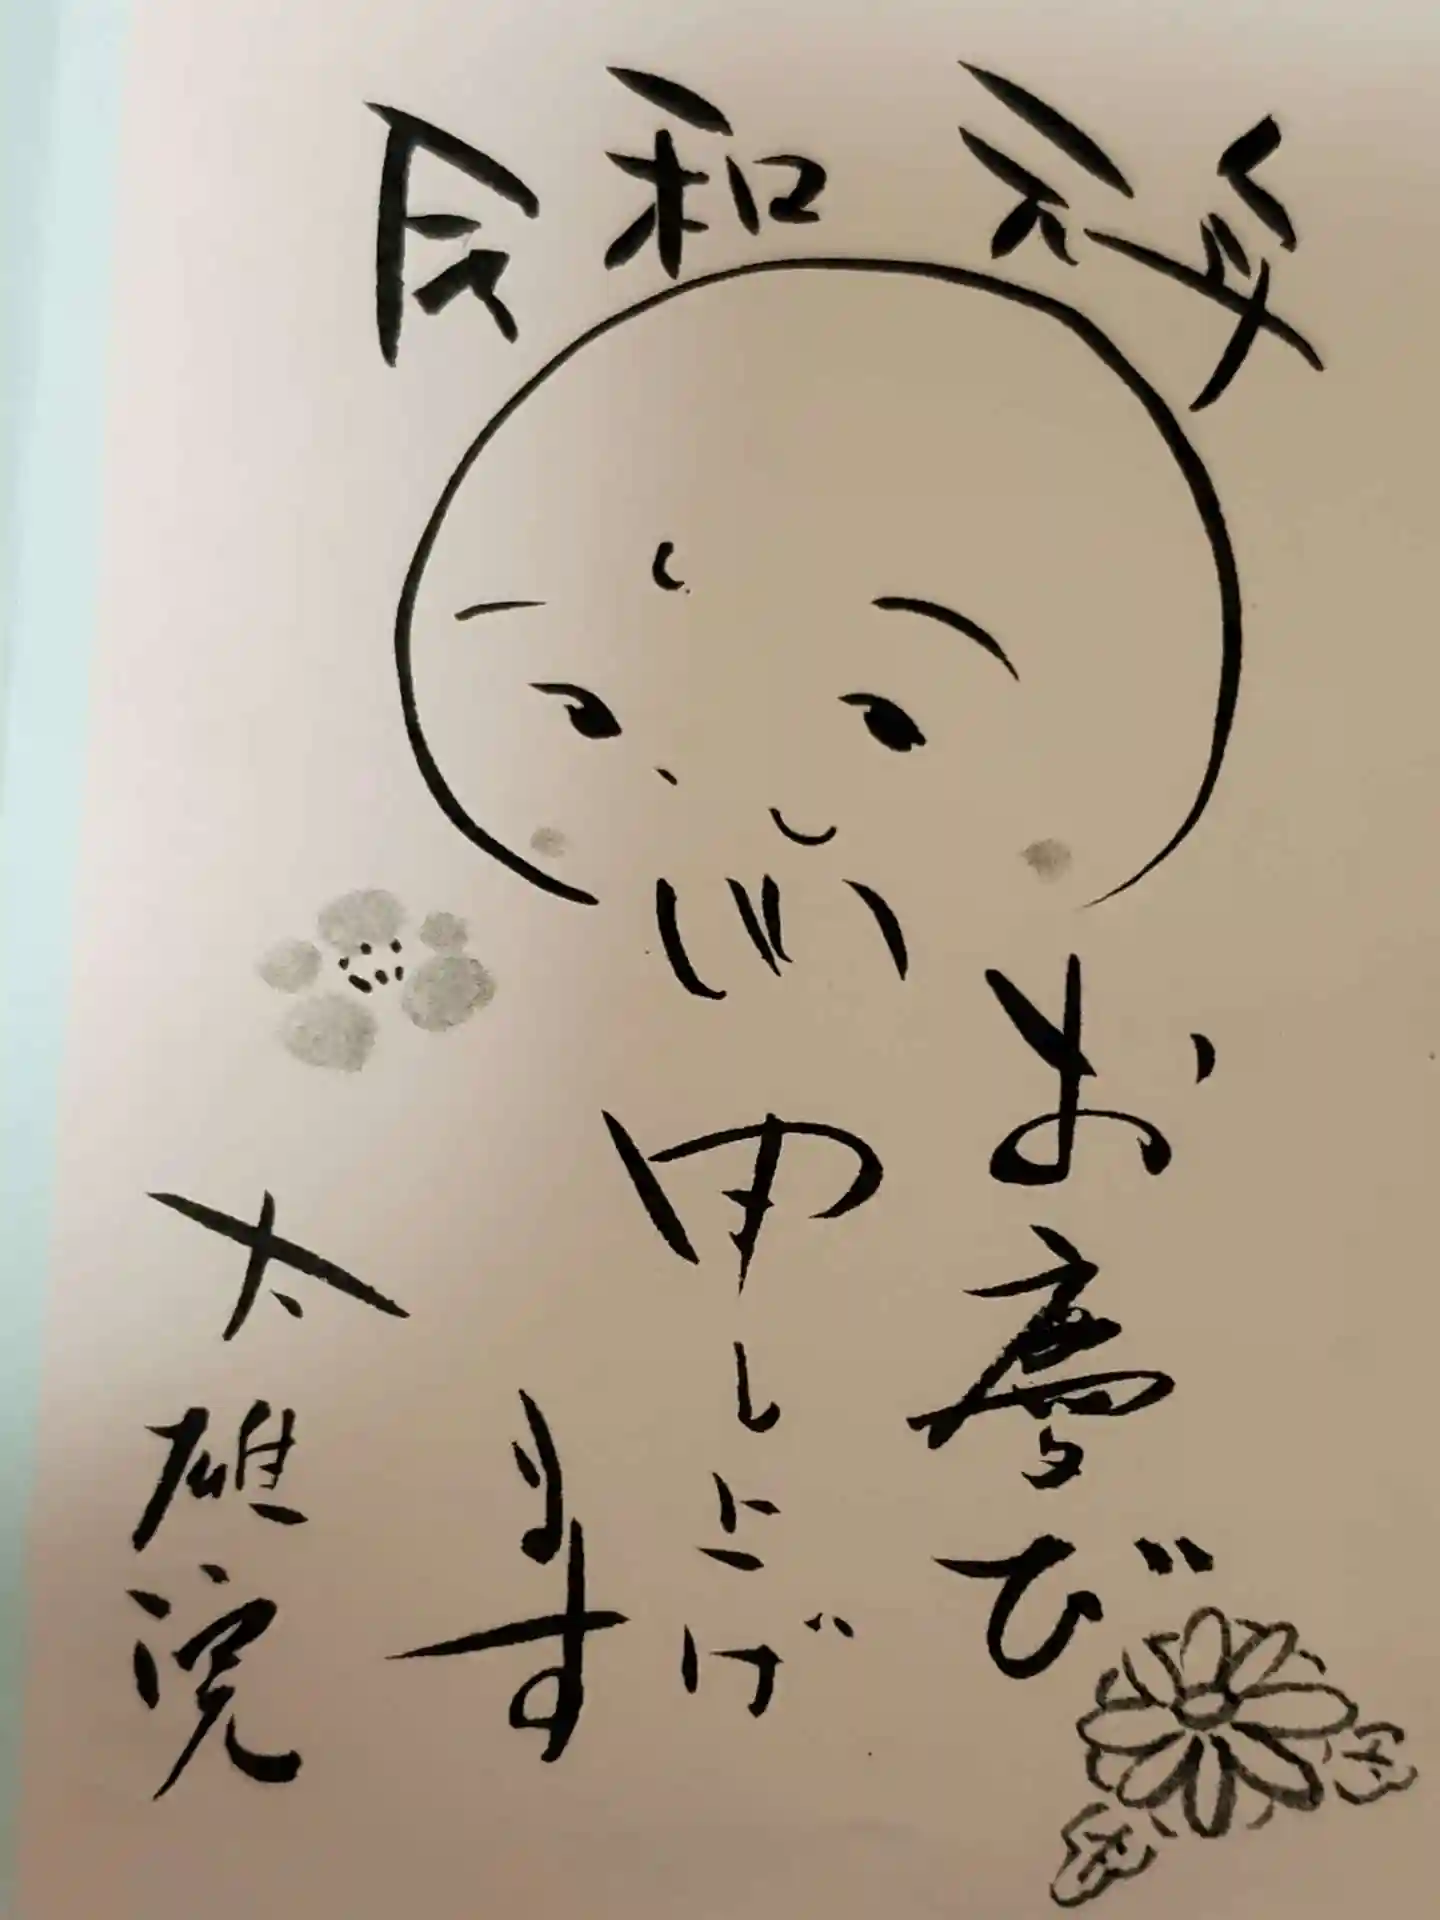 令和元年
お慶び
申し上げ
ます
太雄院